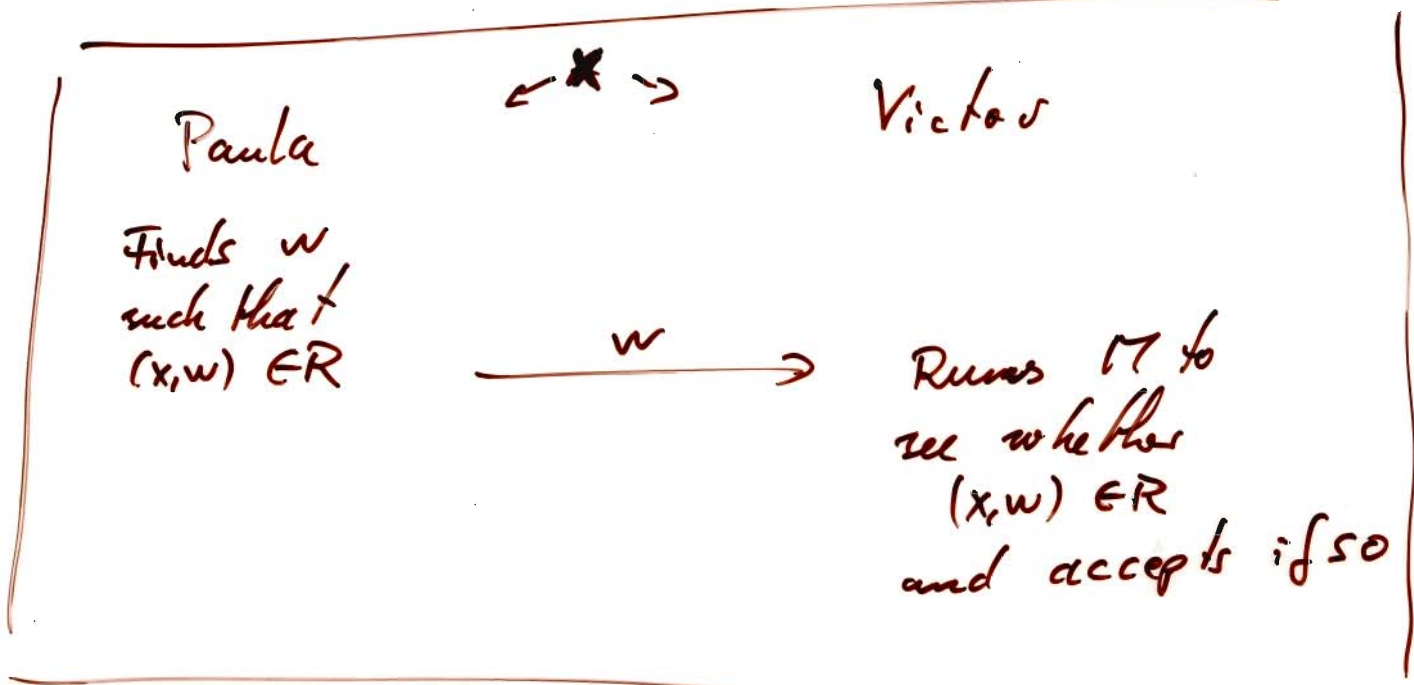 ← x →
Paula
Victor
Finds w
such that
(x,w) ∈R
w
Runs M to
see whether
(x,w) ∈R
and accepts if so